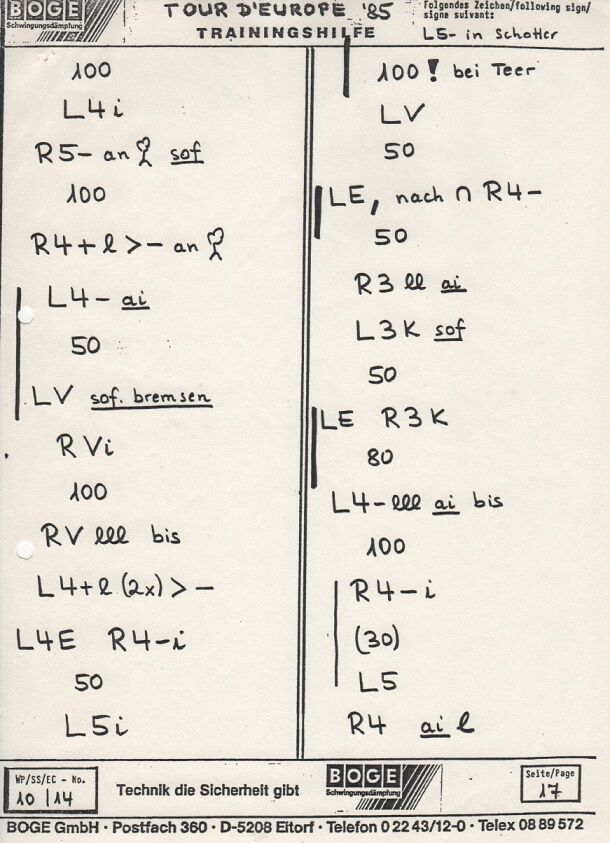 BOGE
Schwingungsdämpfung
TOUR D'EUROPE '85
TRAININGSHILFE
Folgendes Zeichen/following sign/
signe suivant:
L5- in Schotter
100
L4i
R5- an sof
100
R4+l >- an
L4- ai
50
LV sof. bremsen
RVi
100
RV lll bis
L4+l (2x) > -
L4E R4-i
50
L5i
100! bei Teer
LV
50
LE, nach ∩ R4-
50
R3 ll ai
L3K sof
50
LE R3K
80
L4- lll ai bis
100
R4-i
(30)
L5
R4 ai l
WP/SS/EC - No.
10 | 14
Technik die Sicherheit gibt
BOGE
Schwingungsdämpfung
Seite/Page
17
BOGE GmbH · Postfach 360 · D-5208 Eitorf · Telefon 0 22 43/12-0 · Telex 08 89 572